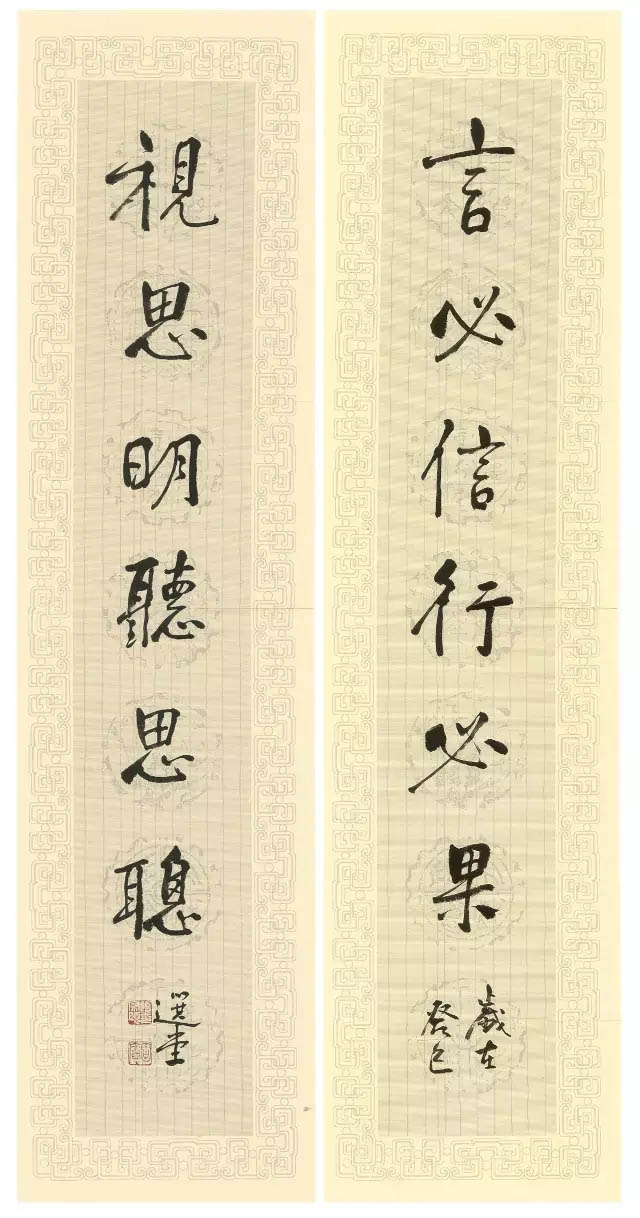 言必信行必果
歲在
癸巳
視思明聽思聰
選堂